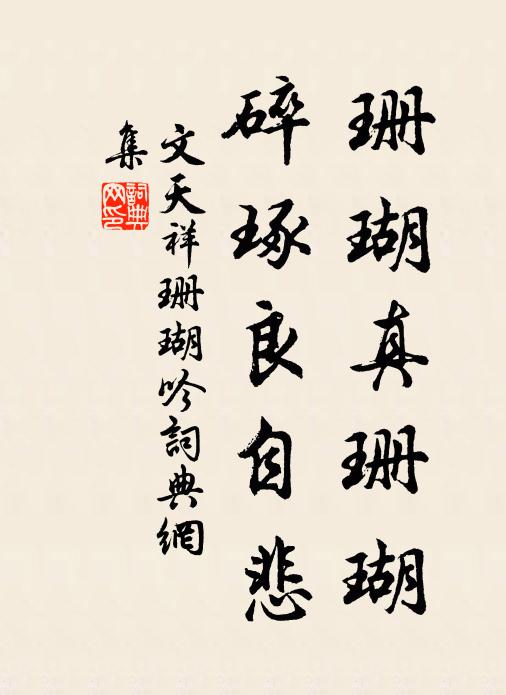 珊瑚真珊瑚
碎琢良自悲
文天祥珊瑚吟詞典網
集
詞典網印